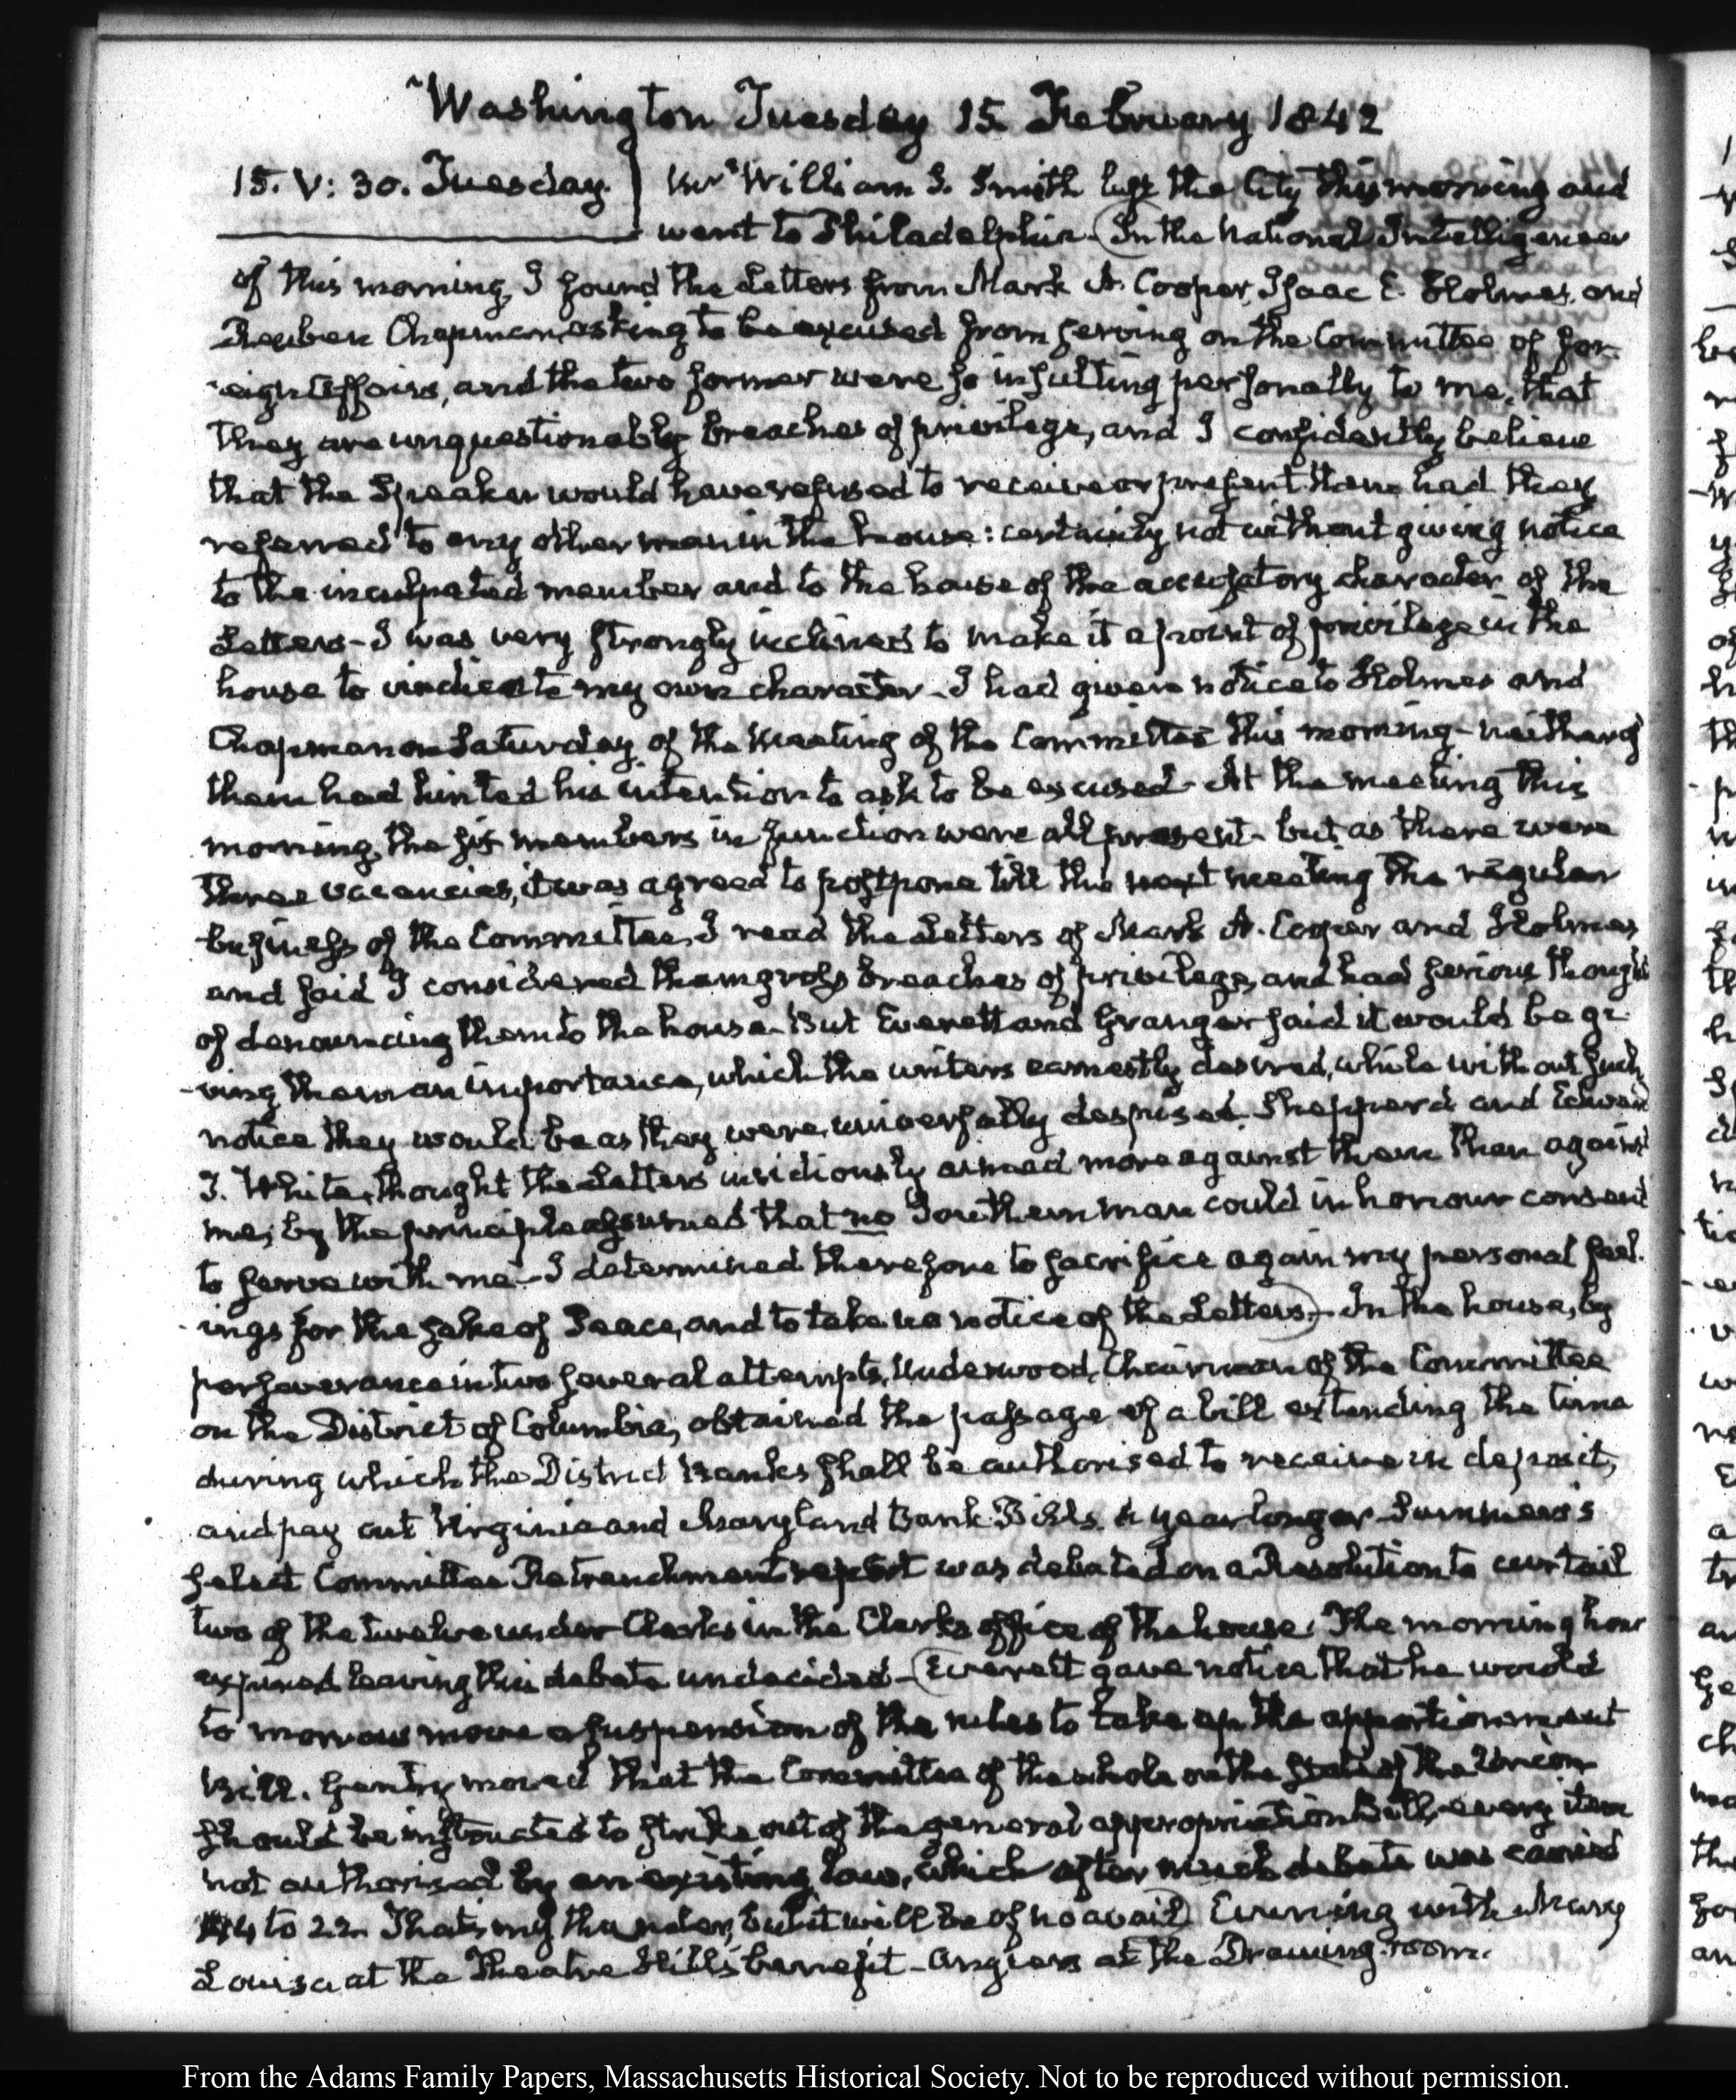 Washington Tuesday 15. February 1842
15. V: 30. Tuesday. Mrs William S. Smith left the City this morning and
went to Philadelphia. (In the National Intelligencer
of this morning, I found the Letters from Mark A. Cooper, Isaac E. Holmes, and
Reuben Chapman, asking to be excused from serving on the Committee of for-
-eign Affairs, and the two former were so insulting personally to me, that
they are unquestionably breaches of privilege, and I confidently believe
that the Speaker would have refused to receive or present them had they
referred to any other man in the house: certainly not without giving notice
to the inculpated member and to the house of the accusatory character of the
Letters- I was very strongly inclined to make it a point of privilege in the
house to vindicate my own character- I had given notice to Holmes and
Chapman on Saturday, of the meeting of the Committee this morning- neither of
them had hinted his intention to ask to be excused- At the meeting this
morning, the six members in function were all present- but as there were
three vacancies, it was agreed to postpone till the next meeting the regular
business of the Committee. I read the Letters of Mark A. Cooper and Holmes
and said I considered them gross breaches of privilege, and had serious thoughts
of denouncing them to the house- But Everett and Granger said it would be gi-
-ving them an importance, which the writers earnestly desired, while without such
notice they would be as they were, universally despised. Shepperd and Edward
J. White, thought the Letters insidiously aimed more against them than against
me; by the principle assumed that no Southern man could in honour consent
to serve with me- I determined therefore to sacrifice again my personal feel-
-ings for the sake of Peace, and to take no notice of the Letters)- In the house, by
perseverance in two several attempts, Underwood, Chairman of the Committee
on the District of Columbia, obtained the passage of a bill extending the time
during which the District Banks shall be authorised to receive in deposit,
and pay out Virginia and Maryland Bank Bills a year longer- Summers's
select Committee Retrenchment report was debated on a Resolution to curtail
two of the twelve under Clerks in the Clerks office of the house. The morning hour
expired leaving this debate undecided- (Everett gave notice that he would
to morrow move a suspension of the rules to take up the apportionment
Bill. Gentry moved that the Committee of the whole on the state of the Union
should be instructed to strike out of the general appropriation Bill every item
not authorised by an existing law, which after much debate was carried
to 22. That's my thunder, but it will be of no avail) Evening with Mary
Louisa at the Theatre Hill's benefit- Angiers at the Drawing-room.
From the Adams Family Papers, Massachusetts Historical Society. Not to be reproduced without permission.